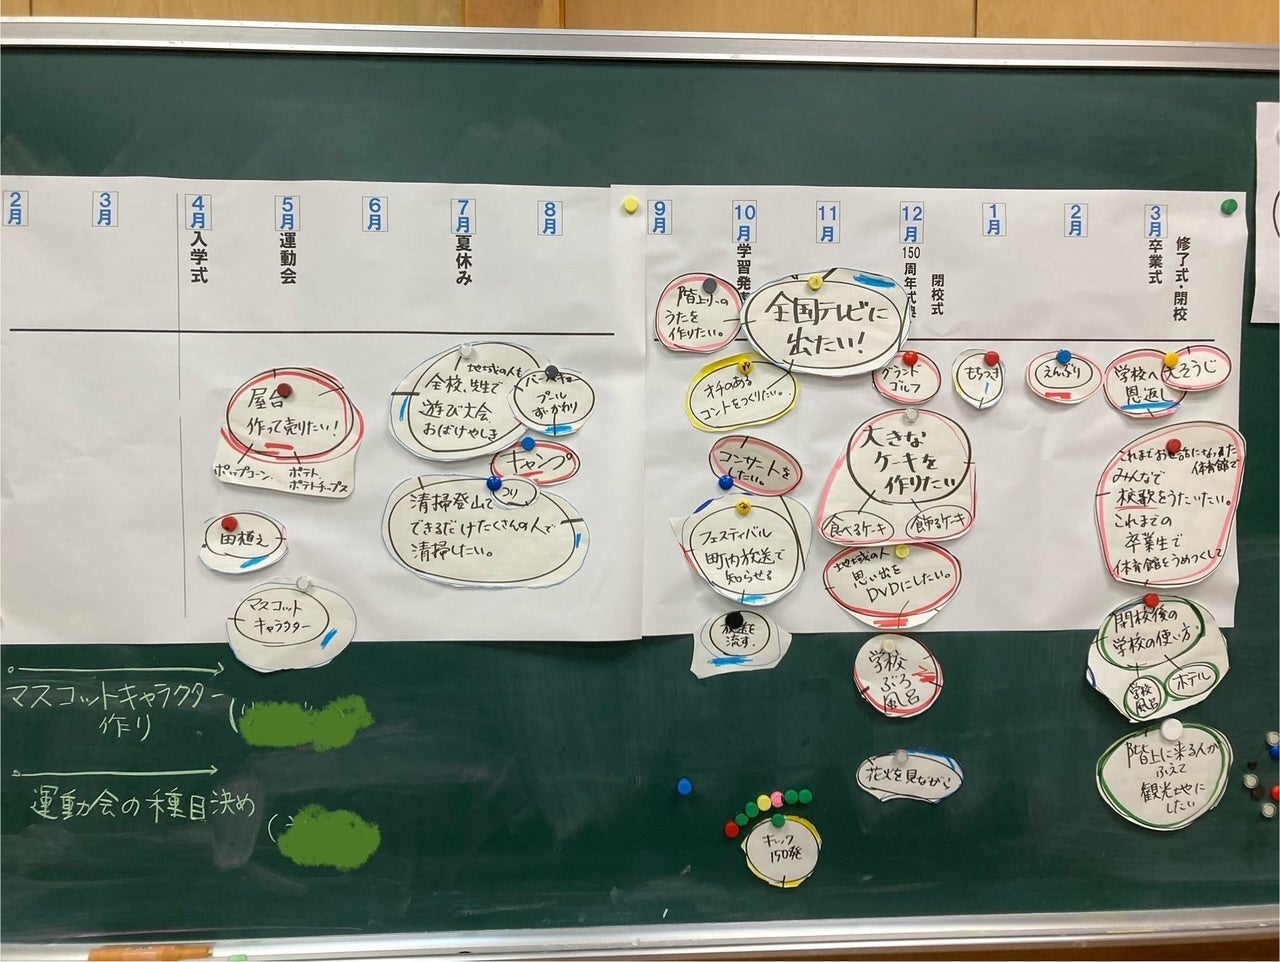 2月
3月
4月
入学式
5月
運動会
6月
7月
夏休み
8月
9月
10月
学習発
11月
12月
150
周年式典
閉校式
1月
2月
3月
卒業式
修了式・閉校
屋台
作って売りたい!
ポップコーン
ポテト
ポテトチップス
田植え
マスコット
キャラクター
地域の人も
全校、先生で
遊び大会
おばけやしき
プール
キャンプ
清掃登山で
つり
できるだけたくさんの人で
清掃したい。
うたを
作りたい。
全国テレビに
出たい!
オチのある
コントをつくりたい。
コンサートを
したい。
フェスティバル
町内放送で
知らせる
放送を
流す。
グランド
ゴルフ
大きな
ケーキを
作りたい
食べるケーキ
飾るケーキ
地域の人
思い出を
DVDにしたい。
学校
ぶろ
風呂
花火を見ながら
キック
150発
もちつき
えんぶり
学校へ
恩返し
そうじ
これまでお世話になった
体育館で
みんなで
校歌をうたいたい。
これまでの
卒業生で
体育館をうめつくして
閉校後の
学校の使い方
学校
風呂
ホテル
階上に来る人が
ふえて
観光地に
したい
マスコットキャラクター
作り
運動会の種目決め